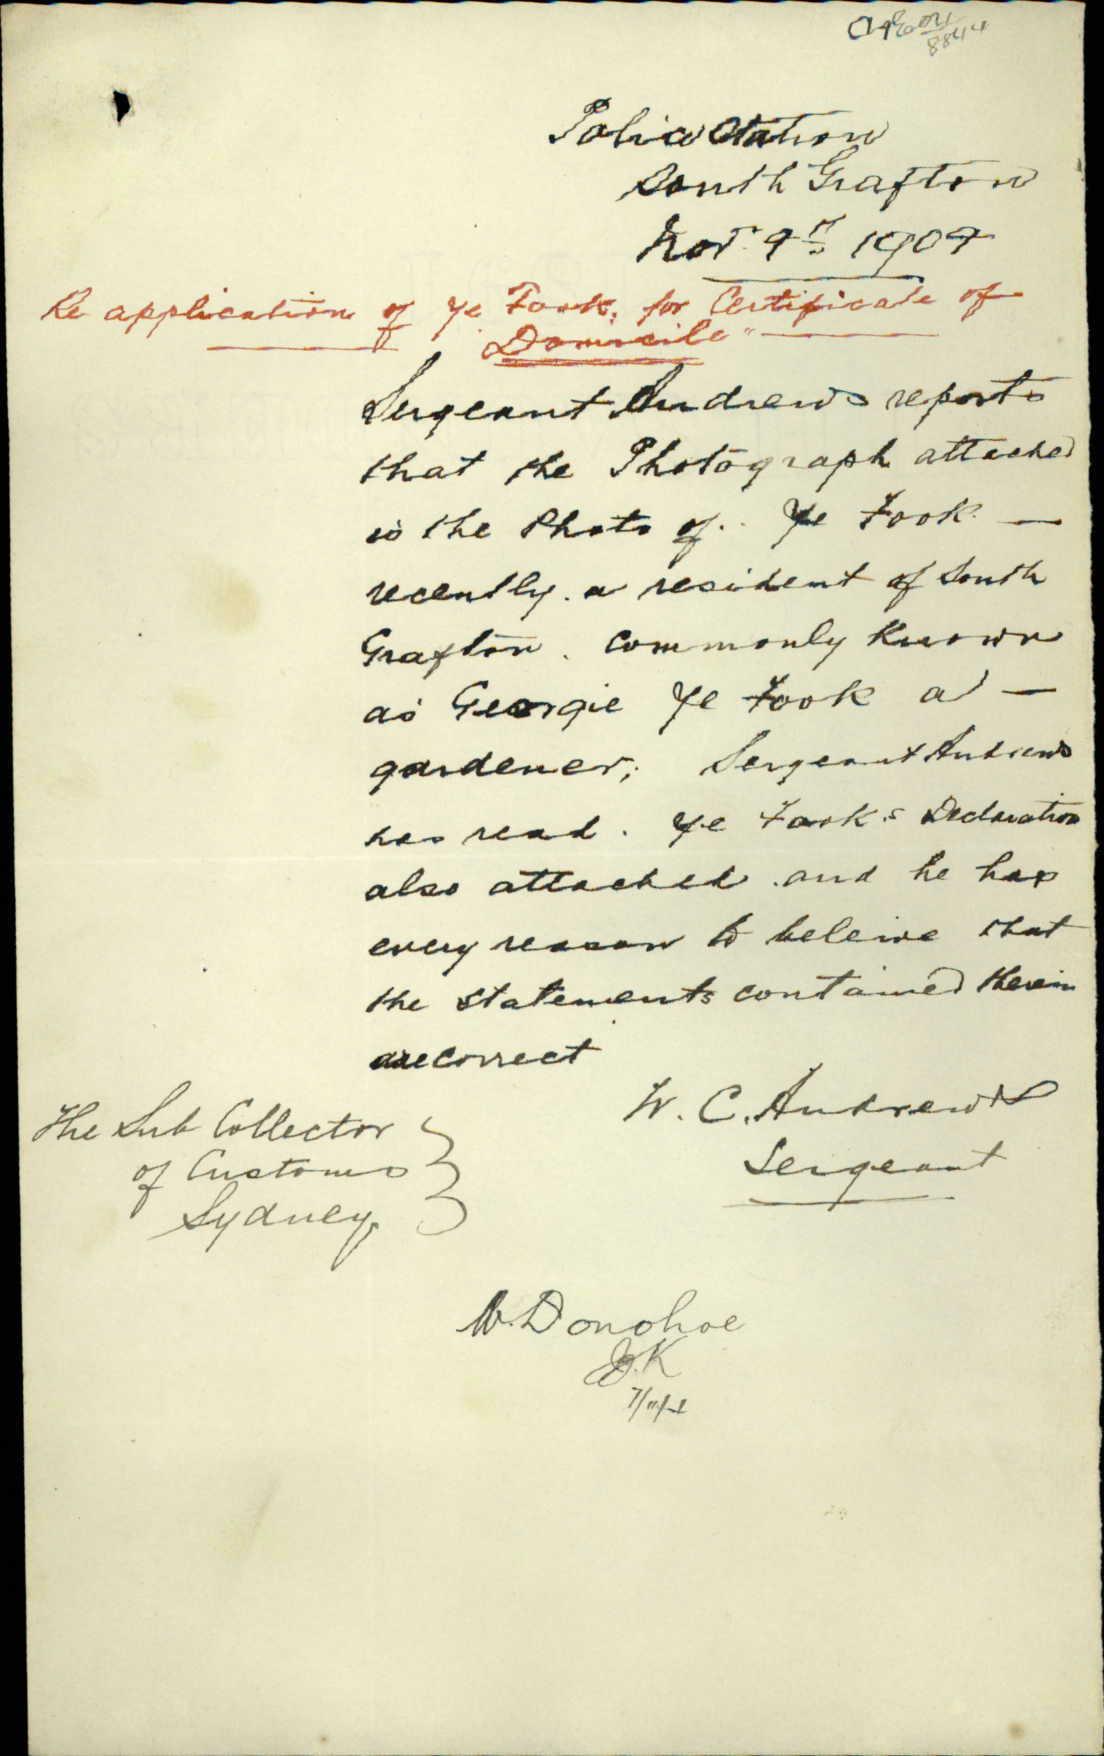 8844
Police Station
South Grafton
Nov. 9th 1907
Re application of Ye Fook, for Certificate of
Domicile"
Sergeant Andrews reports
that the Photograph attached
is the Photo of.. Ye Fook —
recently. a resident of South
Grafton. commonly known
as Georgie Ye Fook a —
gardener; Sergeant Andrews
has read. Ye Fook's Declaration
also attached. and he has
every reason to beleive that
the statements contained therein
are correct
W. C. Andrews
Sergeant
The Sub Collector
of Customs
Sydney
Donohoe